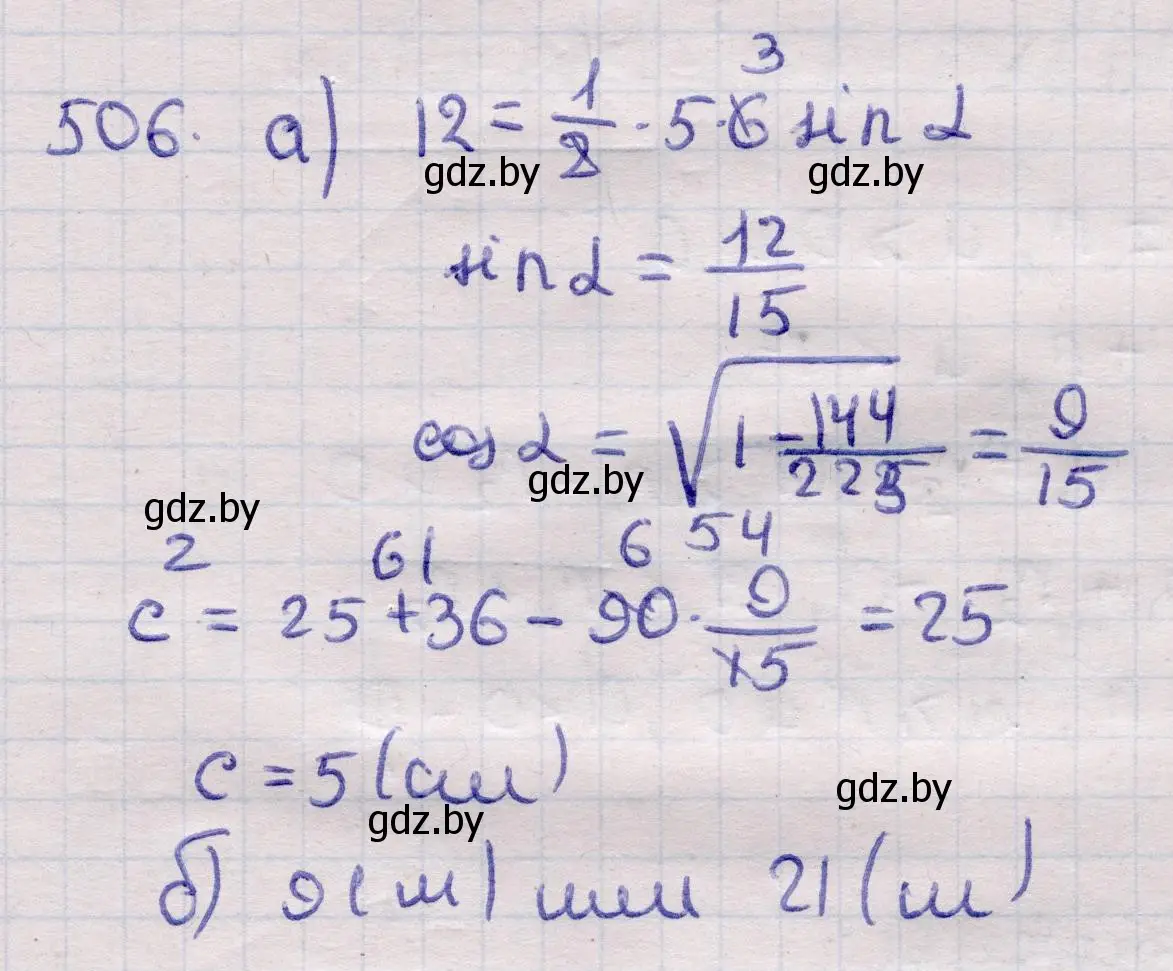 506. а) 12 = 1/2 · 5 · 6 3 sin α
gdz.by gdz.by
sin α = 12/15
cos α = √(1 - 144/225) = 9/15
gdz.by
gdz.by
61 6 54
c² = 25 + 36 - 90 · 9/15 = 25
c = 5 (см)
gdz.by
gdz.by
б) 9 (м) или 21 (м)